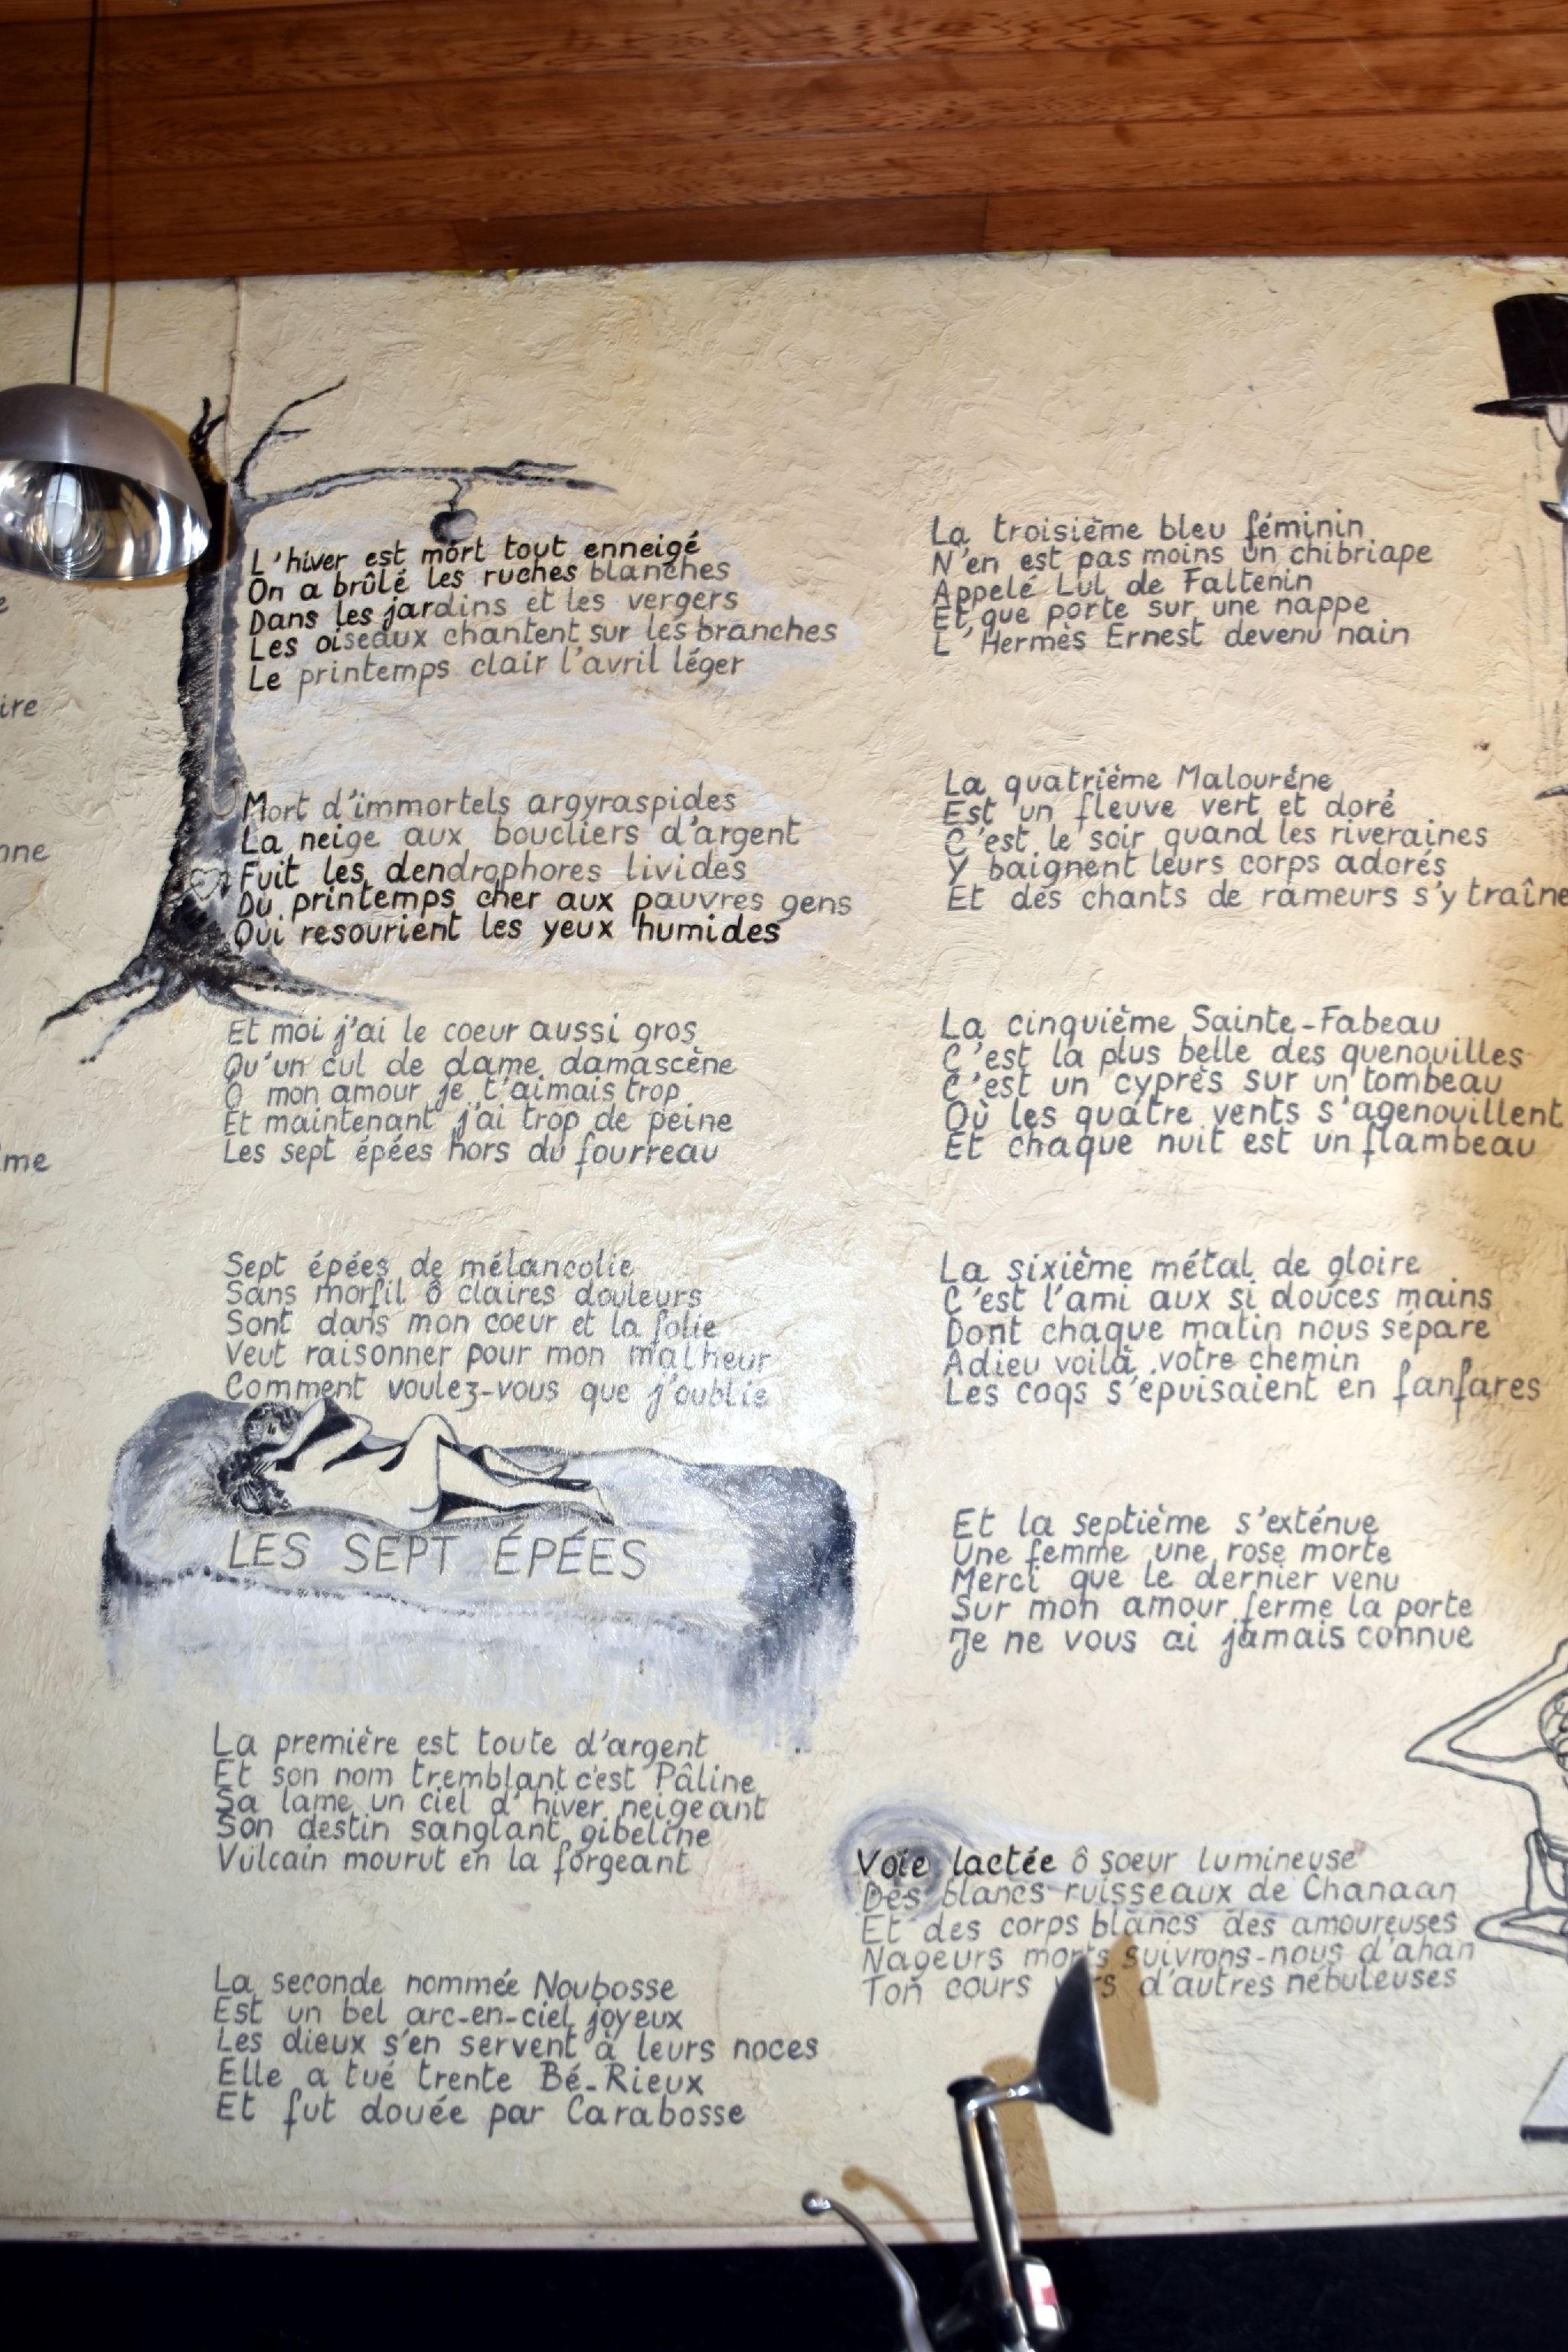 e
ire
nne
me
L'hiver est mort tout enneigé
On a brûlé les ruches blanches
Dans les jardins et les vergers
Les oiseaux chantent sur les branches
Le printemps clair l'avril léger
Mort d'immortels argyraspides
La neige aux boucliers d'argent
Fuit les dendrophores livides
Du printemps cher aux pauvres gens
Qui resourient les yeux humides
Et moi j'ai le coeur aussi gros
Qu'un cul de dame damascène
O mon amour je t'aimais trop
Et maintenant j'ai trop de peine
Les sept épées hors du fourreau
Sept épées de mélancolie
Sans morfil ô claires douleurs
Sont dans mon coeur et la folie
Veut raisonner pour mon malheur
Comment voulez-vous que j'oublie
LES SEPT ÉPÉES
La première est toute d'argent
Et son nom tremblant c'est Pâline
Sa lame un ciel d'hiver neigeant
Son destin sanglant gibeline
Vulcain mourut en la forgeant
La seconde nommée Noubosse
Est un bel arc-en-ciel joyeux
Les dieux s'en servent à leurs noces
Elle a tué trente Bé-Rieux
Et fut douée par Carabosse
La troisième bleu féminin
N'en est pas moins un chibriape
Appelé Lul de Faltenin
Et que porte sur une nappe
L'Hermès Ernest devenu nain
La quatrième Malourène
Est un fleuve vert et doré
C'est le soir quand les riveraines
Y baignent leurs corps adorés
Et des chants de rameurs s'y traîne
La cinquième Sainte-Fabeau
C'est la plus belle des quenouilles
C'est un cyprès sur un tombeau
Où les quatre vents s'agenouillent
Et chaque nuit est un flambeau
La sixième métal de gloire
C'est l'ami aux si douces mains
Dont chaque matin nous sépare
Adieu voilà votre chemin
Les coqs s'épuisaient en fanfares
Et la septième s'exténue
Une femme une rose morte
Merci que le dernier venu
Sur mon amour ferme la porte
Je ne vous ai jamais connue
Voie lactée ô soeur lumineuse
Des blancs ruisseaux de Chanaan
Et des corps blancs des amoureuses
Nageurs morts suivrons-nous d'ahan
Ton cours vers d'autres nébuleuses